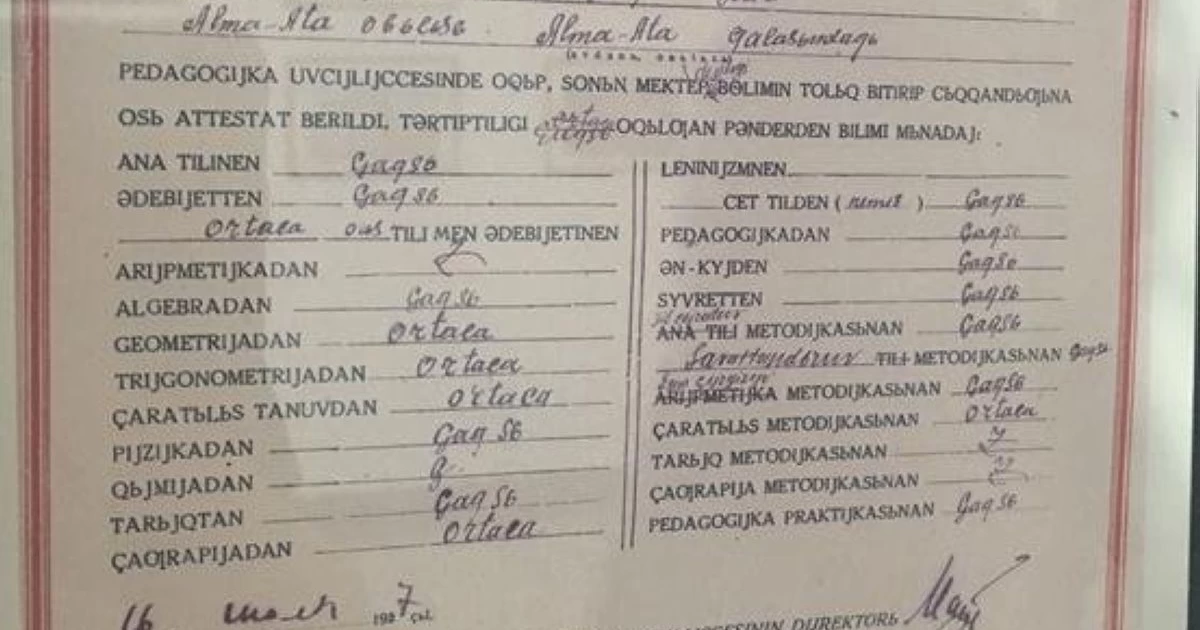 Alma-Ata obbləsь. Alma-Ata qalasьndaƣь
PEDAGOGIJKA UVCIJLIJCCESINDE OQЬP, SONЬN MEKTEP BӨLIMIN TOLЬQ BITIRIP CЬQQANDЬƢЬNA
OSЬ ATTESTAT BERILDI, TƏRTIPTILIGI OQЬLƢAN PƏNDERDEN BILIMI MЬNADAJ:
ANA TILINEN Çaqsь
ƏDEBIJETTEN Çaqsь
ortaca orьs TILI MEN ƏDEBIJETINEN
ARIJPMETIJKADAN
ALGEBRADAN Çaqsь
GEOMETRIJADAN Ortaca
TRIJGONOMETRIJADAN Ortaca
ÇARATЬLЬS TANUVDAN Ortaca
PIJZIJKADAN Çaqsь
QЬJMIJADAN
TARЬJQTAN Çaqsь
ÇAƢRAPIJADAN Ortaca
LENINIJZMNEN
CET TILDEN ( nemis ) Çaqsь
PEDAGOGIJKADAN Çaqsь
ƏN-KYJDEN Çaqsь
SYVRETTEN Çaqsь
ANA TILI METODIJKASЬNAN Çaqsь
TILI METODIJKASЬNAN Çaqsь
ARIJPMETIJKA METODIJKASЬNAN Çaqsь
ÇARATЬLЬS METODIJKASЬNAN Ortaca
TARЬJQ METODIJKASЬNAN
ÇAƢRAPIJA METODIJKASЬNAN
PEDAGOGIJKA PRAKTIJKASЬNAN Çaqsь
16 1937 çь.
DIJREKTORЬ